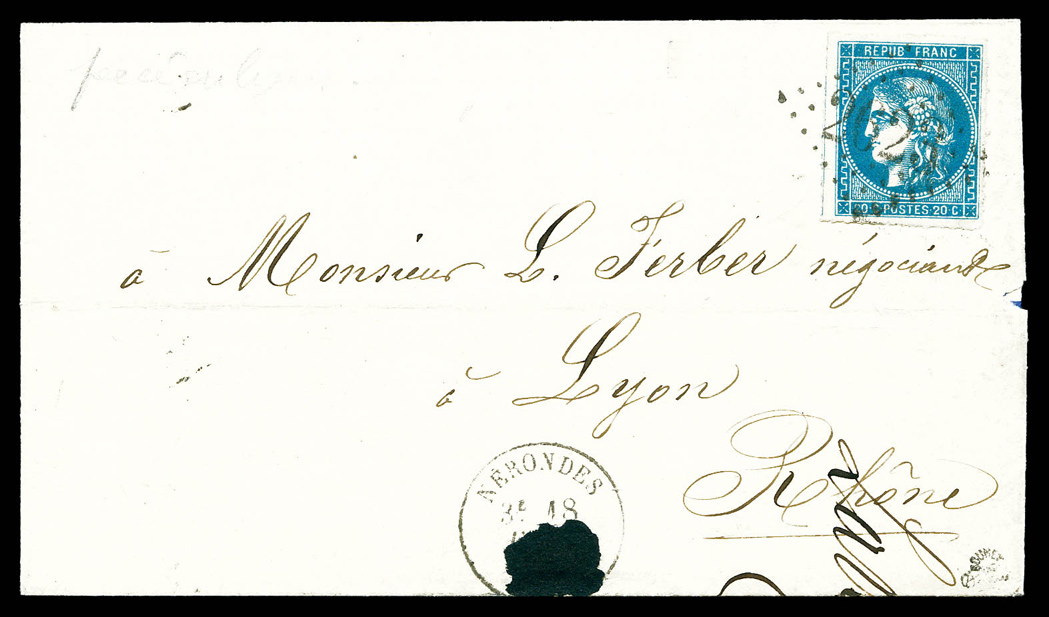 REPUB FRANC
20 C POSTES 20 C
à Monsieur L. Ferber négociant
à Lyon
Rhône
NERONDES
18